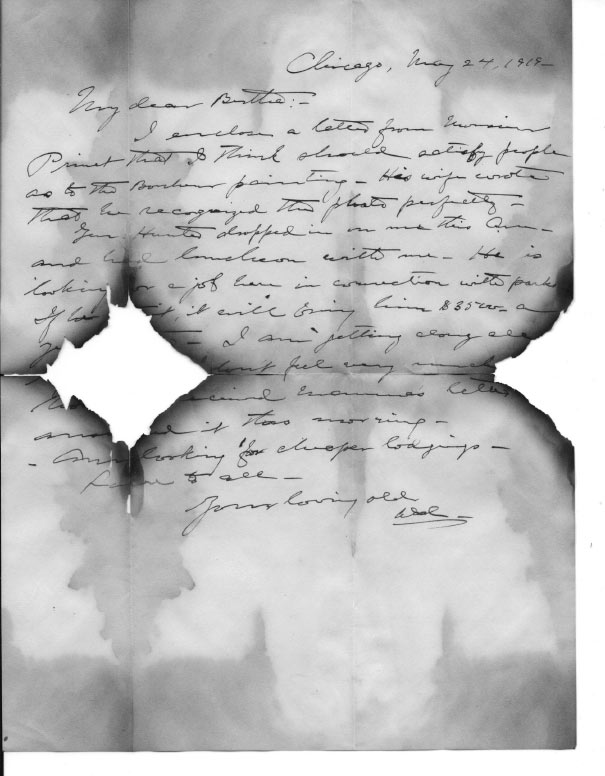 Chicago, May 24, 1919-
My dear Bertie:-
I enclose a letter from Monsieur
Prinet that I think should satisfy people
as to the painting - His wife wrote
that he recognized the photo perfectly -
Hunter dropped in on me this
and had luncheon with me - He is
looking for a job here in connection with parks
If he it, it will bring him $3500 - a
- I am getting along
don't feel very much
Mamma's letter
and it this morning -
- Am looking for cheaper lodgings -
Love to all -
Your loving old